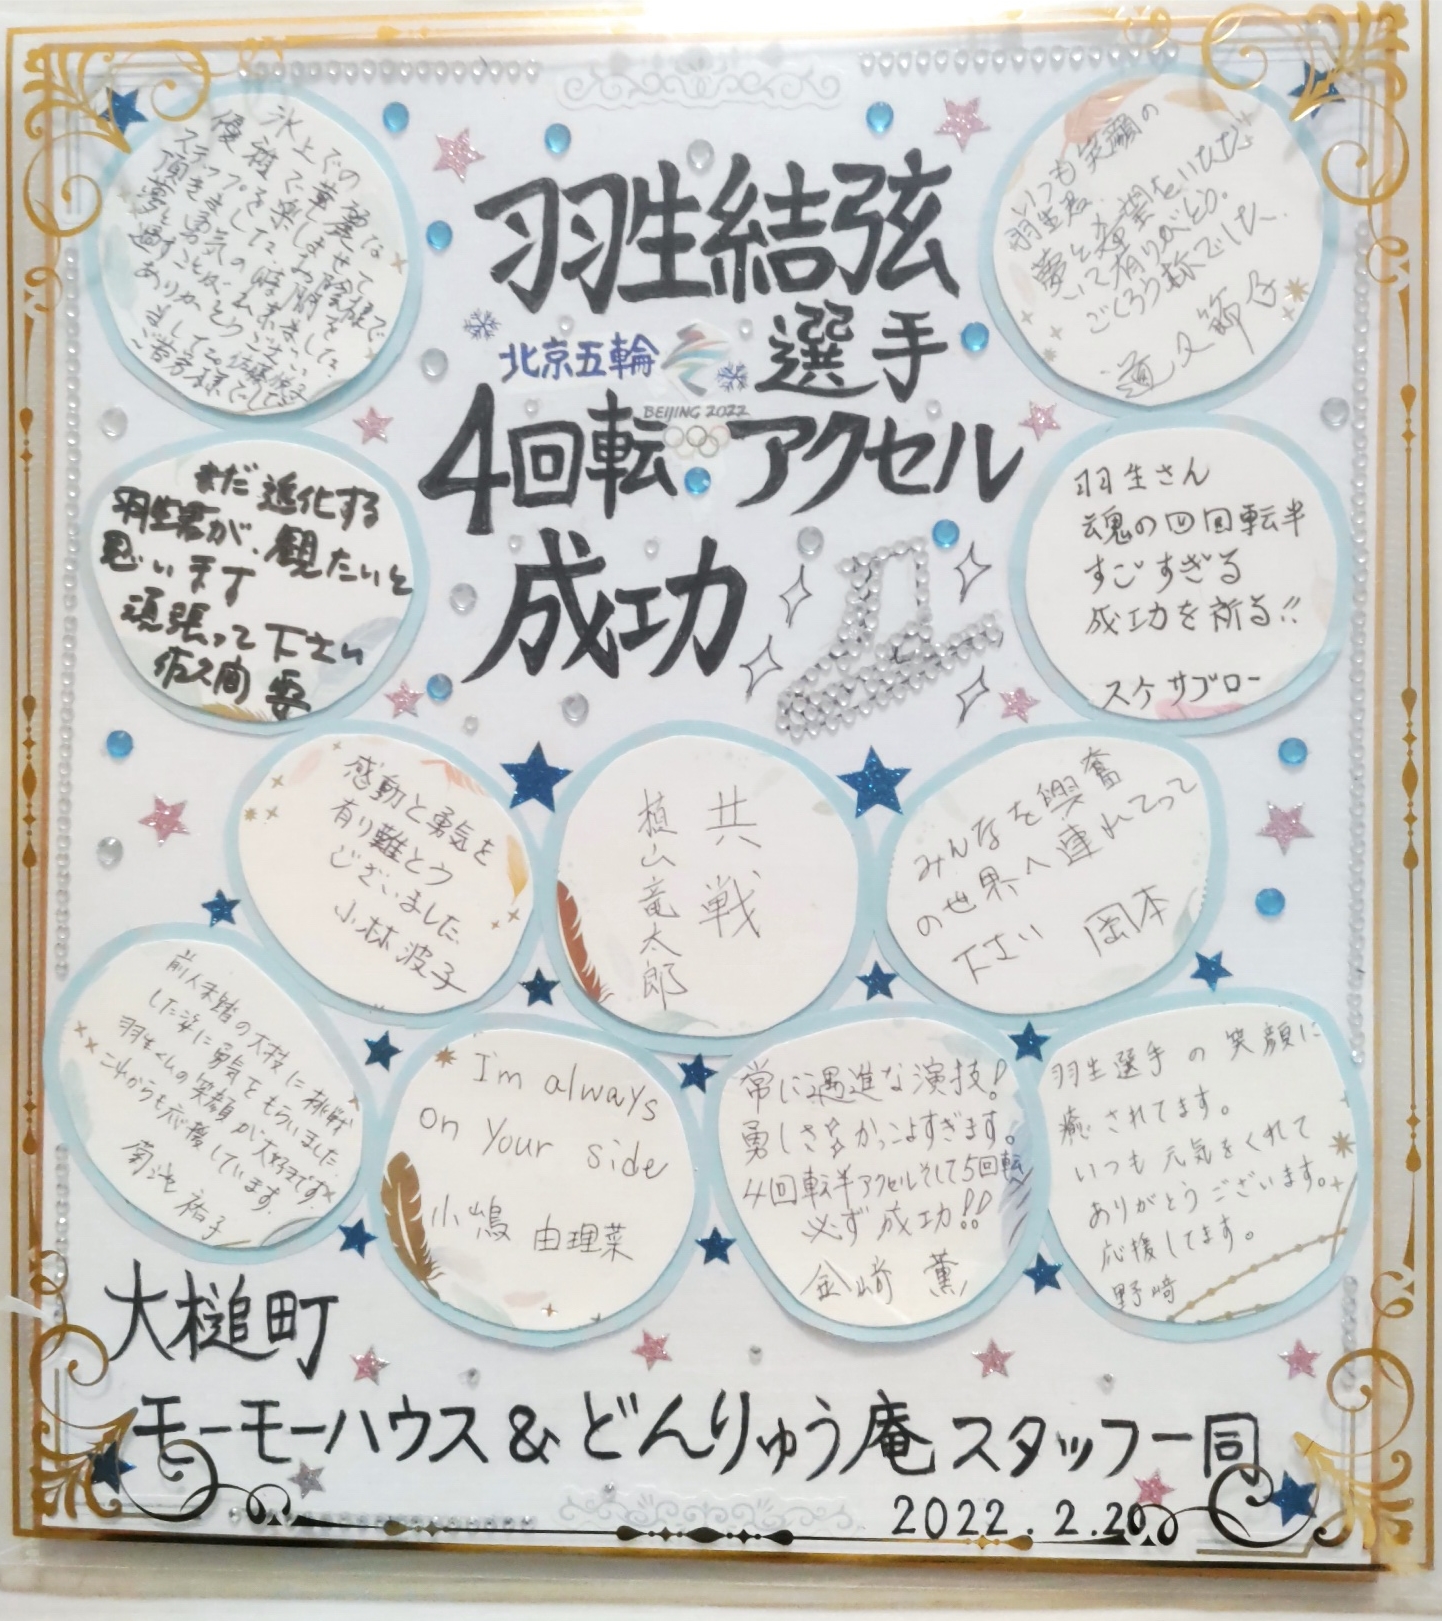 羽生結弦
選手
北京五輪
BEIJING 2022
4回転アクセル
成功
氷上での華麗な
優雅で楽しませて
頂きました
ありがとうござい
まして
ご苦労様でした
いつも笑顔の
羽生君
夢と希望をいただ
いて有りがとう。
ごくろう様でした。
道又節子
まだ進化する
羽生君が、観たいと
思い
頑張って下さい
佐久間
羽生さん
魂の四回転半
すごすぎる
成功を祈る!!
スケサブロー
感動と勇気を
有り難とう
ございました
小林波子
共戦
植山竜太郎
みんなを興奮
の世界へ連れてって
下さい 岡本
前人未踏の大技に挑戦
した姿に勇気をもらいました。
羽生くんの笑顔が大好きです。
これからも応援しています。
菊池裕子
I'm always
on Your side
小嶋 由理菜
常に邁進な演技!
勇しさかっこよすぎます。
4回転半アクセルそして5回転
必ず成功!!
金崎 薫
羽生選手の笑顔に
癒されてます。
いつも元気をくれて
ありがとうございます。
応援してます。
野崎
大槌町
モーモーハウス&どんりゅう庵スタッフ一同
2022.2.20